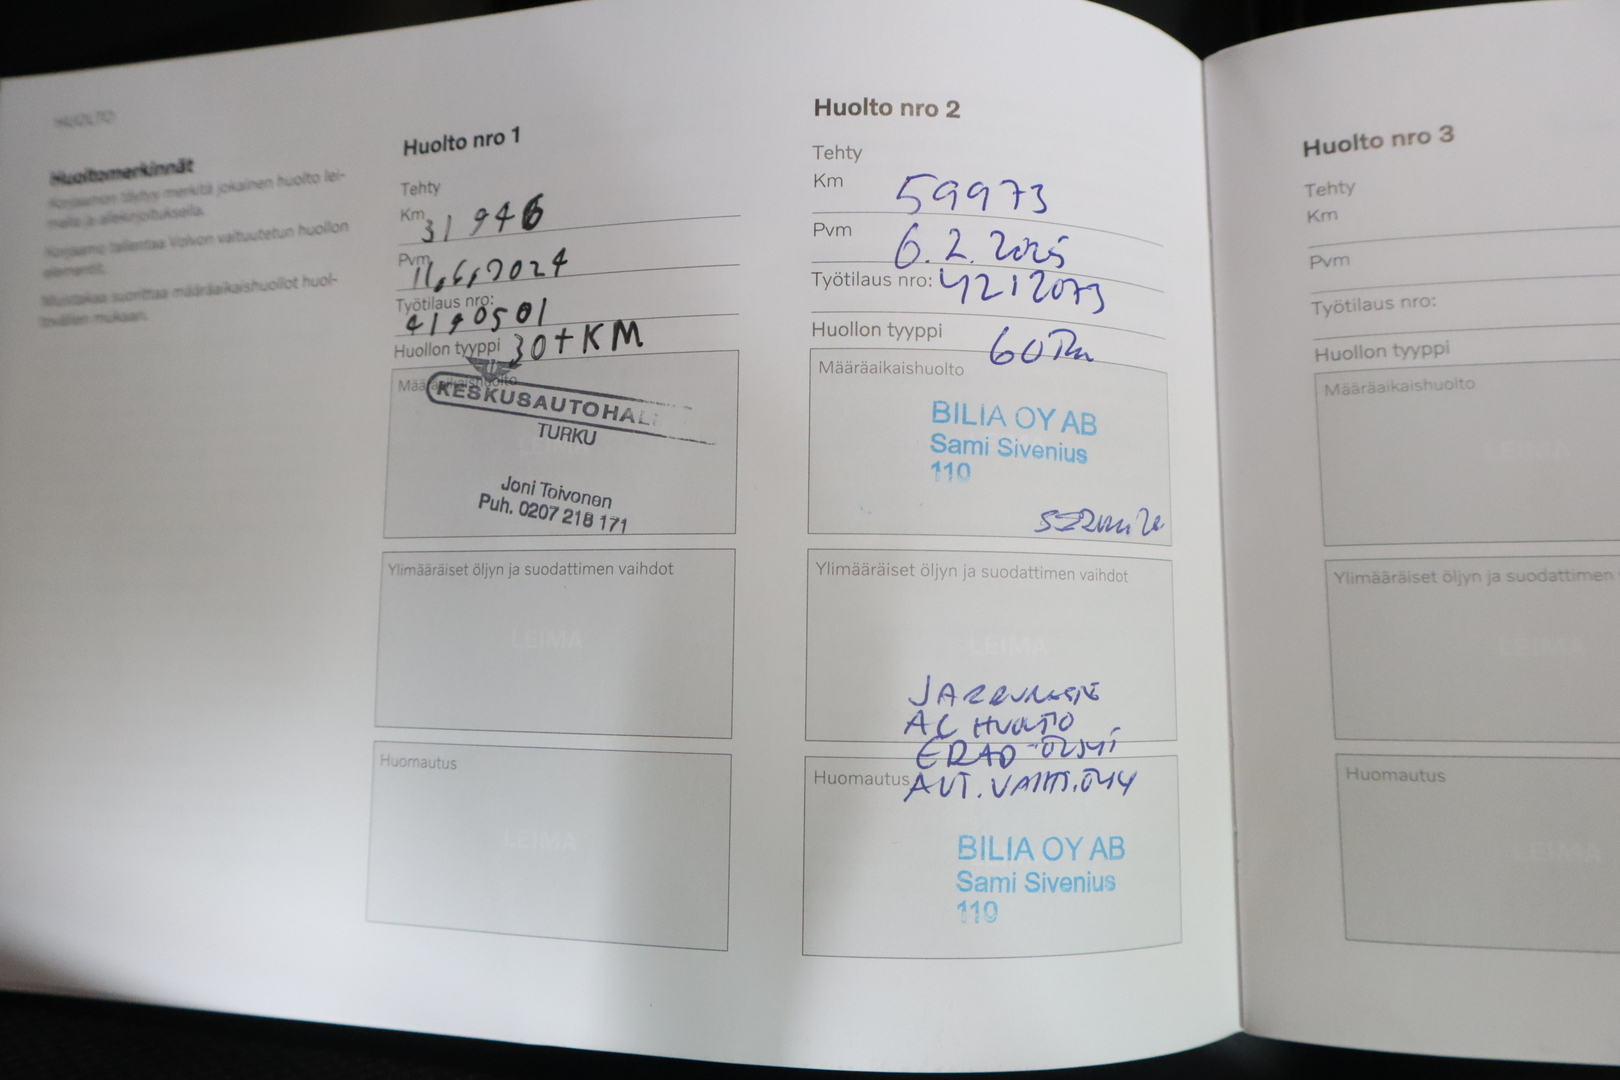 HUOLTO
Huoltomerkinnät
Korjaamon täytyy merkitä jokainen huolto lei-
malla ja allekirjoituksella.
Korjaamo tallentaa Volvon valtuutetun huollon
elementit.
Muistakaa suorittaa määräaikaishuollot huol-
tovälien mukaan.
Huolto nro 1
Tehty
Km 31 946
Pvm 11.6.2024
Työtilaus nro:
4190501
Huollon tyyppi 30t KM
Määräaikaishuolto
KESKUSAUTOHAL
TURKU
LEIMA
Joni Toivonen
Puh. 0207 218 171
Ylimääräiset öljyn ja suodattimen vaihdot
LEIMA
Huomautus
LEIMA
Huolto nro 2
Tehty
Km 59973
Pvm 6.2.2025
Työtilaus nro: 4212073
Huollon tyyppi 60
Määräaikaishuolto
BILIA OY AB
Sami Sivenius
110
Ylimääräiset öljyn ja suodattimen vaihdot
LEIMA
JARRUNESTE
AC HUOLTO
ERAD-ÖLJYT
Huomautus AUT.VAIHT.ÖLJY
BILIA OY AB
Sami Sivenius
110
Huolto nro 3
Tehty
Km
Pvm
Työtilaus nro:
Huollon tyyppi
Määräaikaishuolto
LEIMA
Ylimääräiset öljyn ja suodattimen
LEIMA
Huomautus
LEIMA